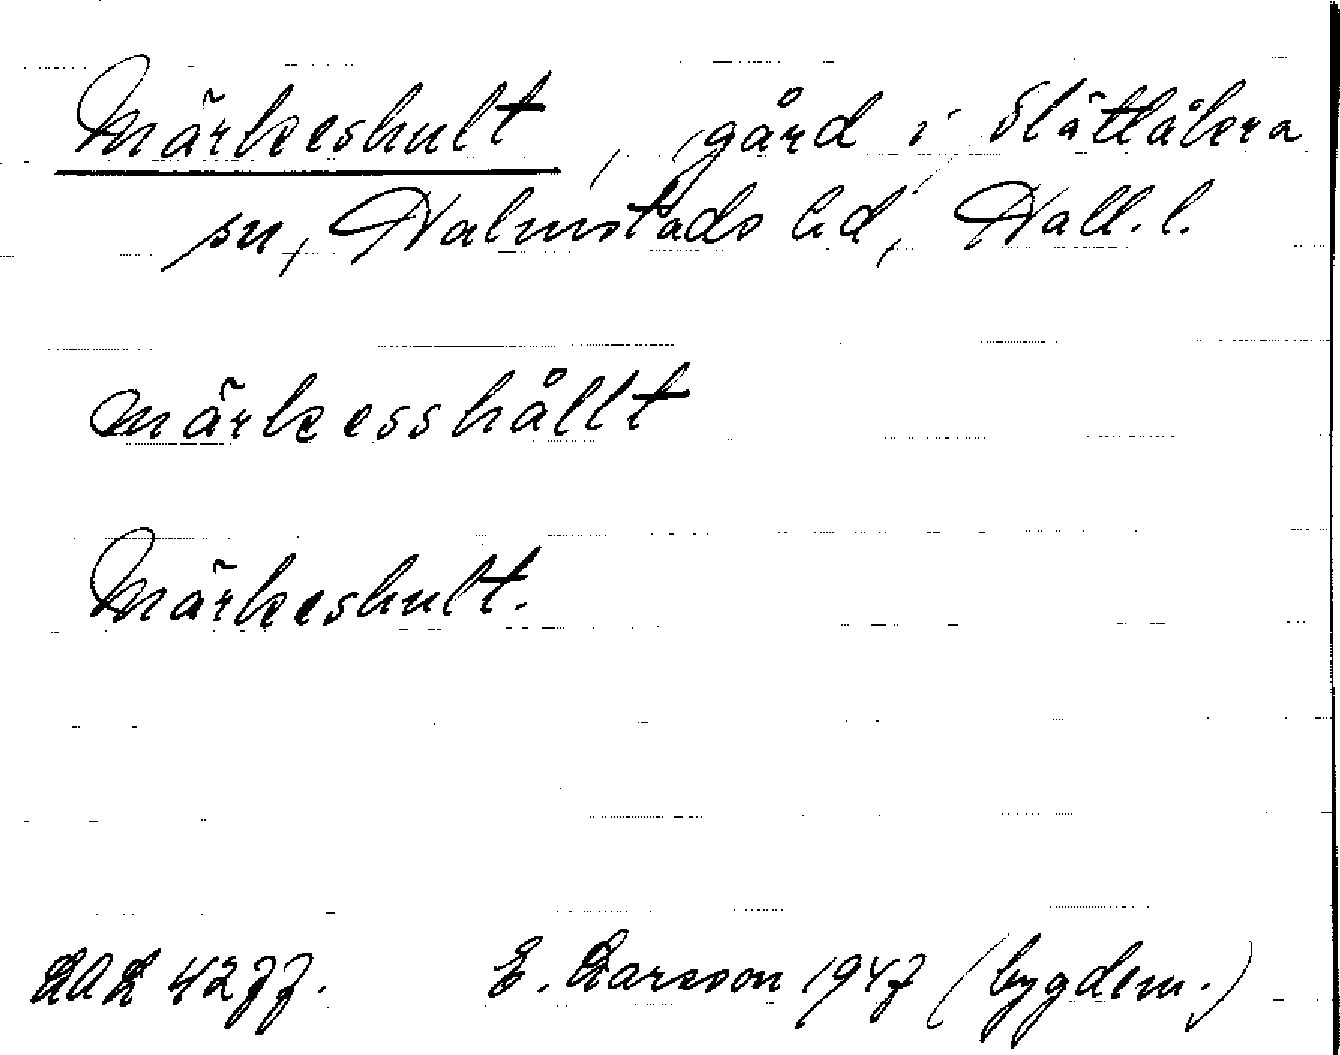 Märkeshult, gård i Slättåkra
sn, Halmstads hd, Hall. l.
märkesshållt
Märkeshult.
LAL 4277. E. Larsson 1947 (bygdem.)